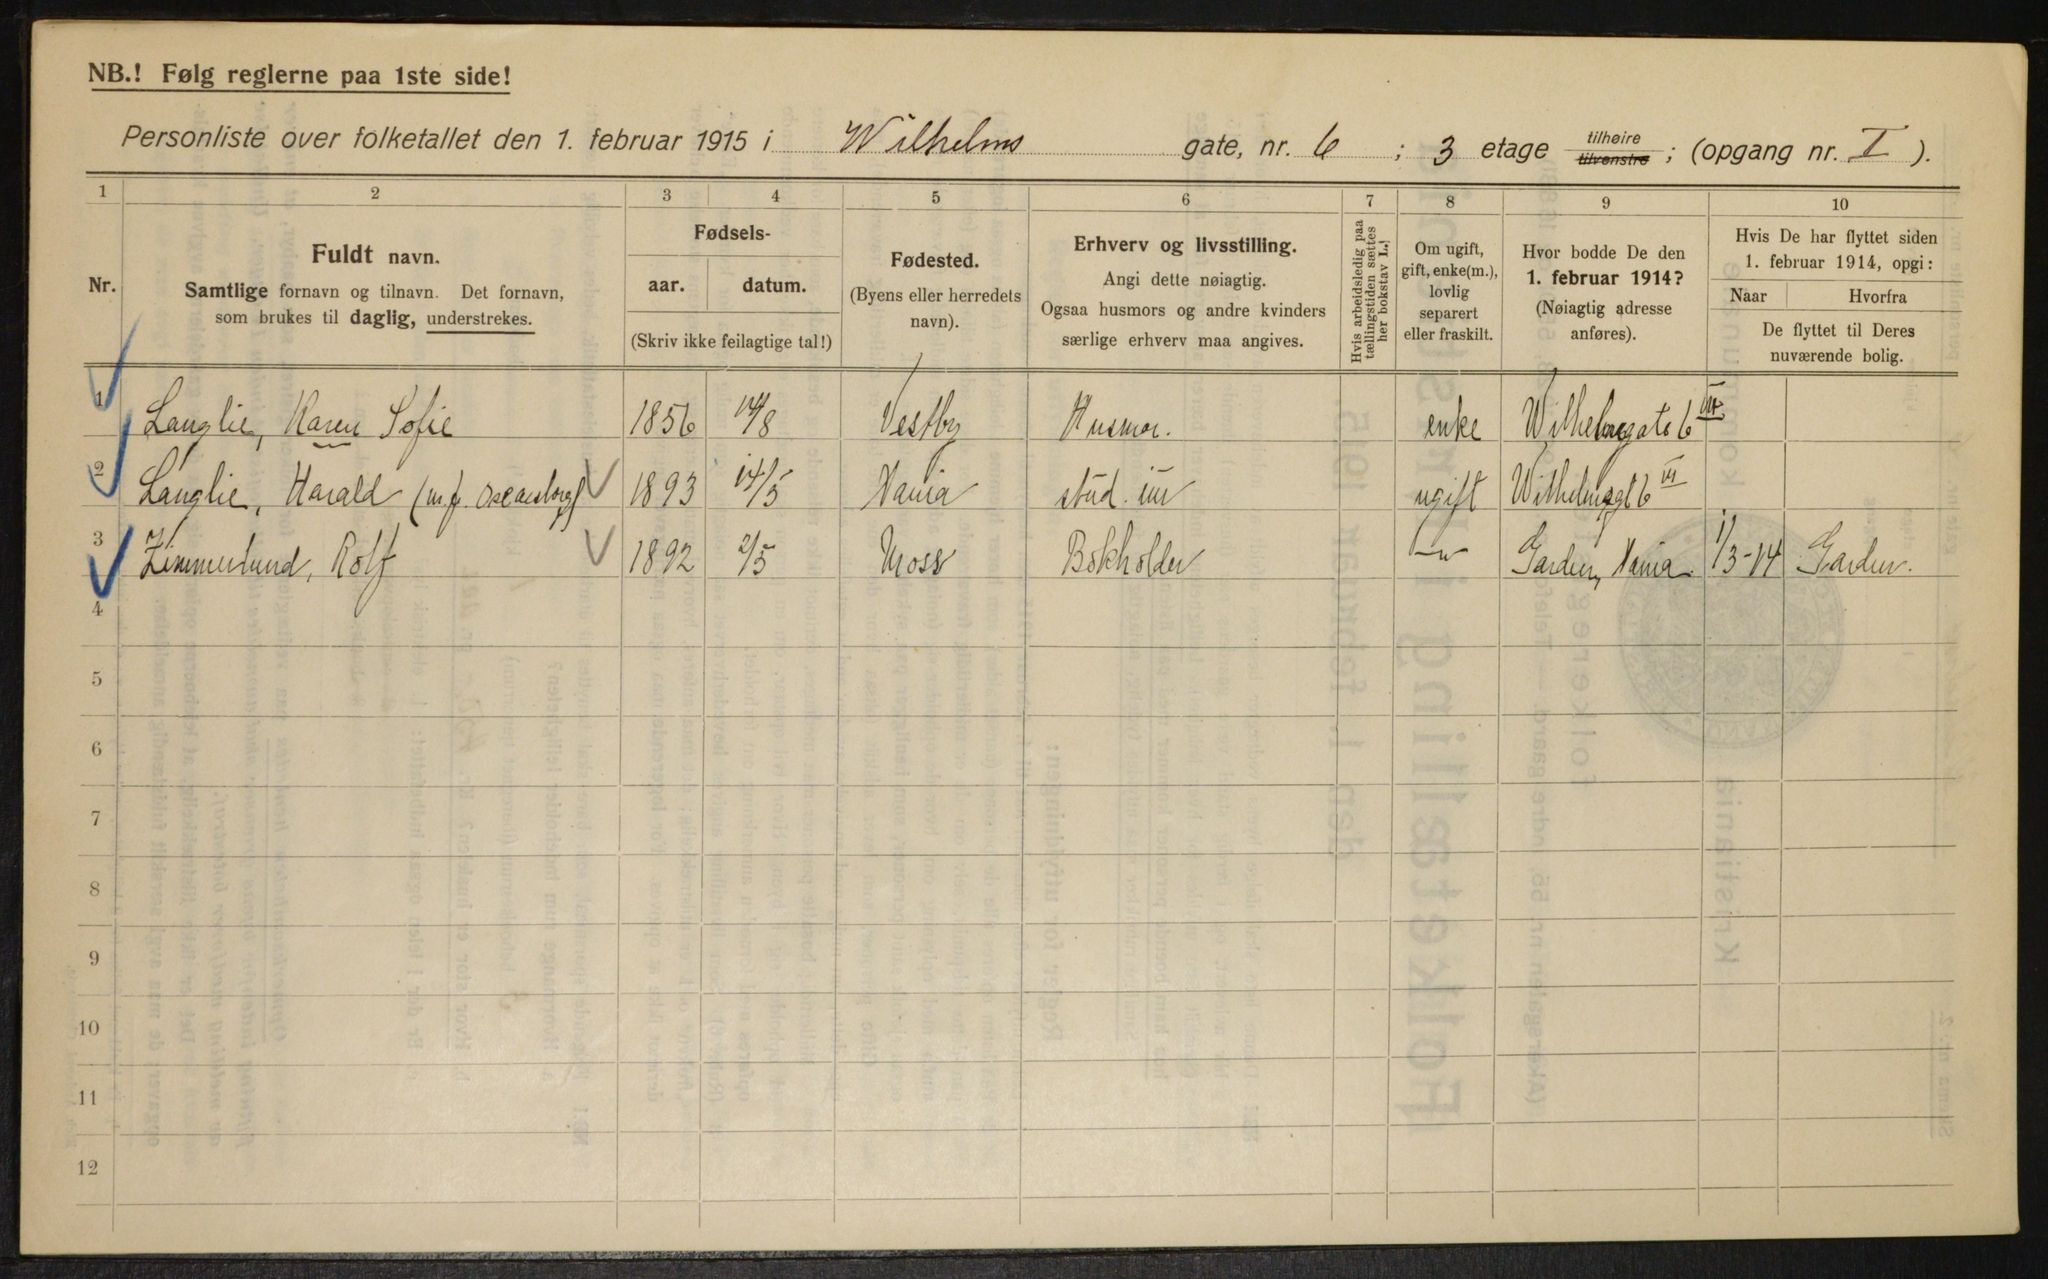 NB.! Følg reglerne paa 1ste side!
Personliste over folketallet den 1. februar 1915 i Wilhelms gate, nr. 6 ; 3 etage tilhøire tilvenstre ; (opgang nr. I ).
1 2 3 4 5 6 7 8 9 10
Nr.
Fuldt navn.
Samtlige fornavn og tilnavn. Det fornavn,
som brukes til daglig, understrekes.
Fødsels-
aar. datum.
(Skriv ikke feilagtige tal!)
Fødested.
(Byens eller herredets
navn).
Erhverv og livsstilling.
Angi dette nøiagtig.
Ogsaa husmors og andre kvinders
særlige erhverv maa angives.
Hvis arbeidsledig paa
tællingstiden sættes
her bokstav L.!
Om ugift,
gift, enke(m.),
lovlig
separert
eller fraskilt.
Hvor bodde De den
1. februar 1914?
(Nøiagtig adresse
anføres).
Hvis De har flyttet siden
1. februar 1914, opgi:
Naar Hvorfra
De flyttet til Deres
nuværende bolig.
1 Langlie, Karen Sofie 1856 14/8 Vestby Husmor. enke Wilhelmsgate 6 III
2 Langlie, Harald (m.f. Oscarsborg) 1893 14/5 Xania stud. iur ugift Wilhelmsgt 6 III
3 Zimmerlund, Rolf 1892 2/5 Moss Bokholder -"- Garden, Xania 1/3-14 Garden.
4
5
6
7
8
9
10
11
12